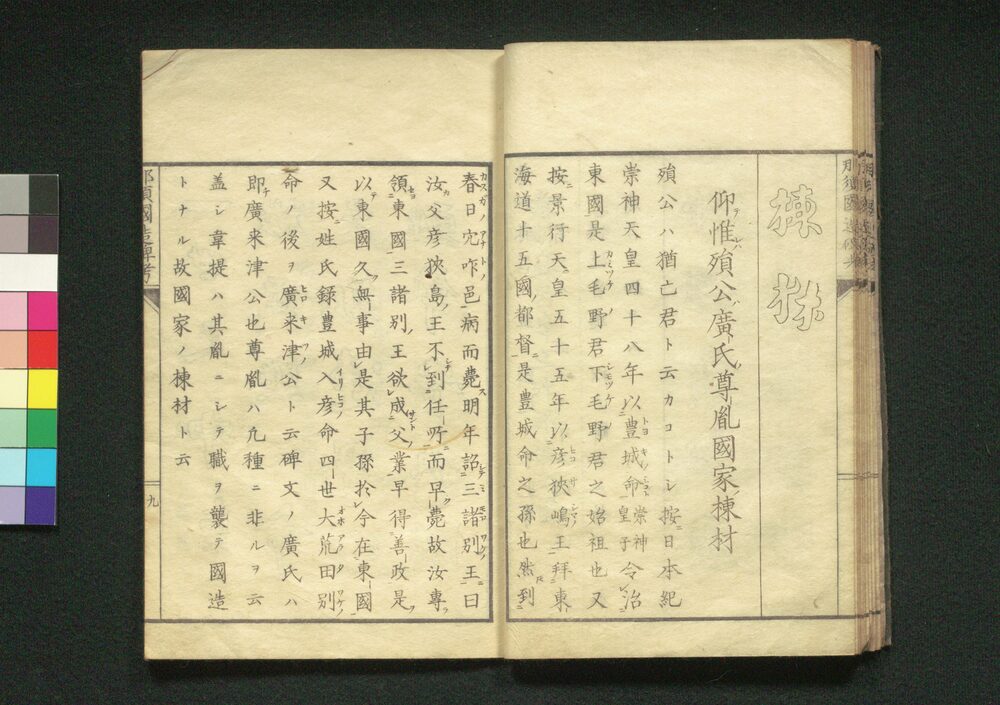 棟 材
仰惟殞公廣氏尊胤國家棟材
殞公ハ猶亡君ト云カコトシ按日本紀
崇神天皇四十八年以豊城命崇神皇子令治
東國是上毛野君下毛野君之始祖也又
按景行天皇五十五年以彦狹嶋王拜東
海道十五國都督是豊城命之孫也然到
春日穴咋邑病而薨明年詔三諸別王曰
汝父彦狹島王不到任所而早薨故汝專
領東國三諸別王欲成父業早得善政是
以東國久無事由是其子孫於今在東國
又按姓氏録豊城入彦命四世大荒田別
命ノ後ヲ廣来津公ト云碑文ノ廣氏ハ
即廣来津公也尊胤ハ凡種ニ非ルヲ云
盖シ韋提ハ其胤ニシテ職ヲ襲テ國造
トナル故國家ノ棟材ト云
那須國造碑考
九